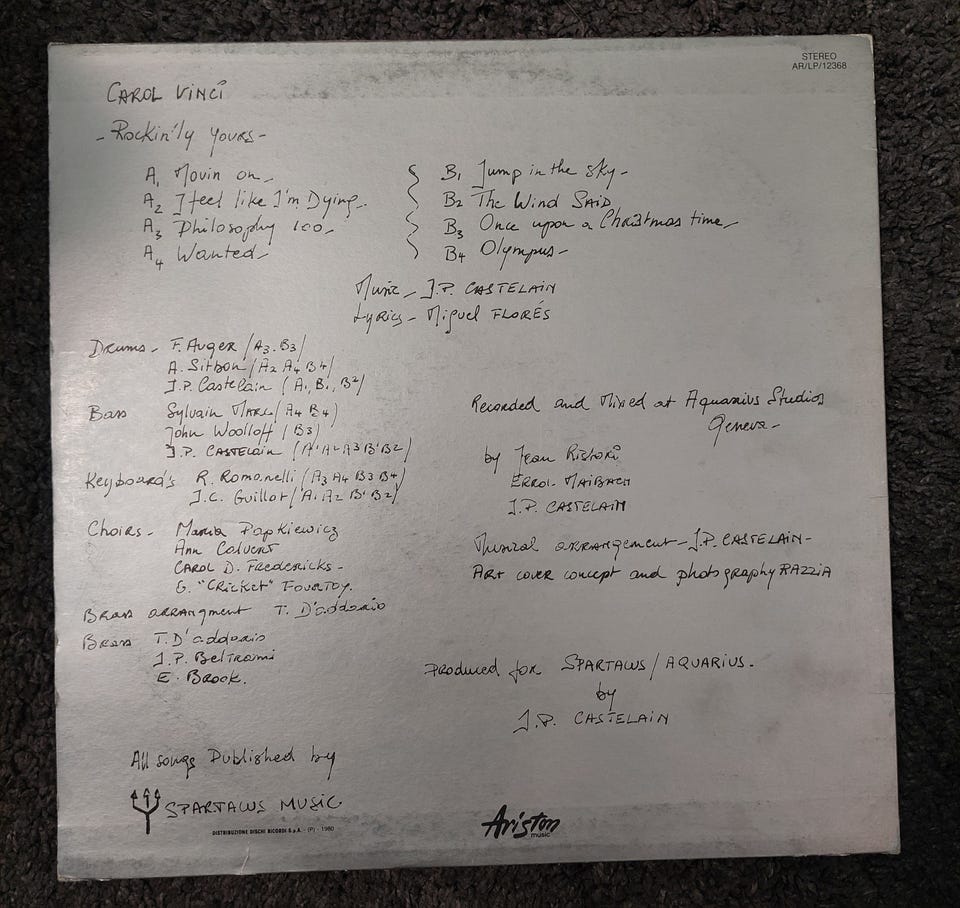 STEREO
AR/LP/12368
CAROL VINCI
- Rockin'ly yours -
A1 Movin on -
A2 I feel like I'm Dying -
A3 Philosophy 100 -
A4 Wanted -
B1 Jump in the sky -
B2 The Wind SAID
B3 Once upon a Christmas time -
B4 Olympus -
Music - J.P. CASTELAIN
Lyrics - Miguel FLORÉS
Drums - F. Auger (A3. B3)
A. Sitbon (A2 A4 B4)
J.P. Castelain (A1. B1. B2)
Bass Sylvain MARC (A4 B4)
John Woolloff (B3)
J.P. CASTELAIN (A1 A2 A3 B1 B2)
Keyboard's R. Romanelli (A3 A4 B3 B4)
J.C. Guillot (A1 A2 B1 B2)
Choirs - Maria Popkiewicz
Ann Calvert
CAROL D. FREDERICKS -
G. "CRICKET" FOURTOY.
Brass arrangment T. D'addario
Brass T. D'addario
J.P. Beltrami
E. Brook.
Recorded and Mixed at Aquarius Studios
Geneva -
by Jean Ristori
ERROL MAIBACH
J.P. CASTELAIN
Musical arrangement - J.P. CASTELAIN -
Art cover concept and photography RAZZIA
Produced for SPARTAWS / AQUARIUS.
by
J.P. CASTELAIN
All songs Published by
SPARTAWS MUSIC
DISTRIBUZIONE DISCHI RICORDI S.p.A. - (P) - 1980
Ariston
music